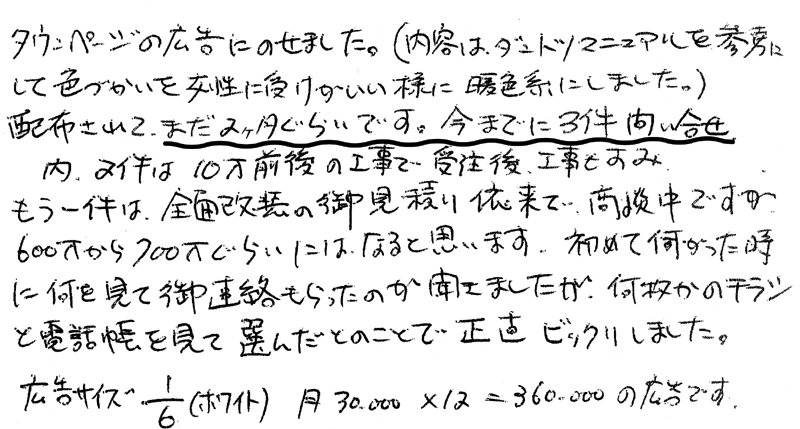 タウンページの広告にのせました。(内容は、ダントツマニュアルを参考に
して色づかいを女性に受けがいい様に暖色系にしました。)
配布されて、まだ2ヶ月ぐらいです。今までに3件問い合せ
内、2件は10万前後の工事で受注後、工事もすみ
もう一件は、全面改装の御見積り依来で、商談中ですが
600万から700万ぐらいにはなると思います。初めて伺がった時
に何を見て御連絡もらったのか聞きましたが、何枚かのチラシ
と電話帳を見て選んだとのことで正直ビックリしました。
広告サイズ 1/6(ホワイト) 月30.000×12=360.000の広告です。